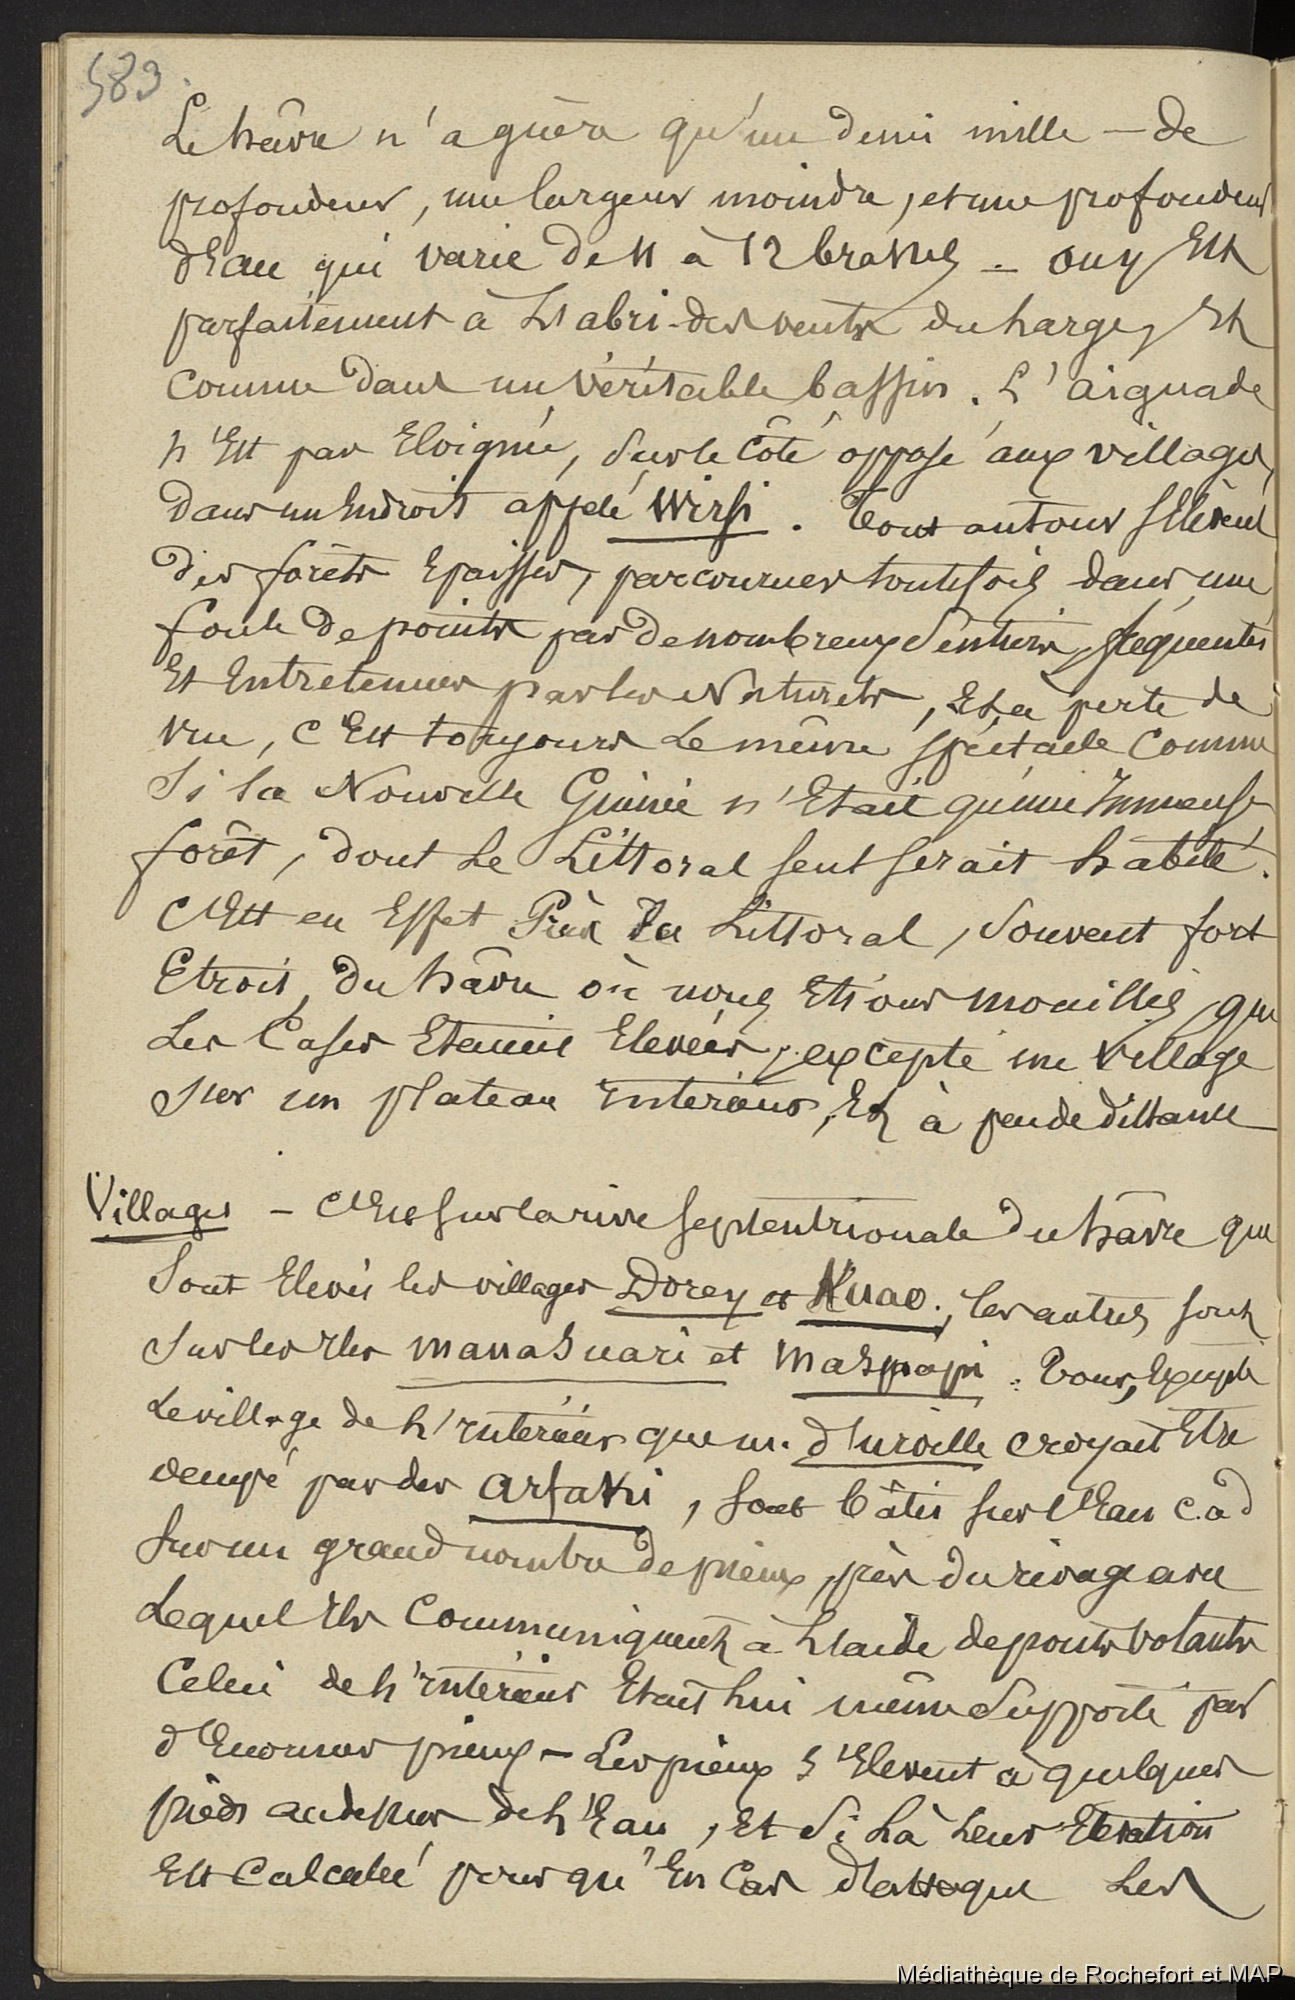 583
Le hâvre n'a guère qu'un demi mille - de
profondeur, une largeur moindre, et une profondeur
d'Eau qui varie de 11 à 12 brasses - on y Est
parfaitement à L'abri des vents du harge, Et
comme dans un véritable bassin. L'aiguade
n'Est pas Eloignée, sur le côté opposé aux villages,
dans un Endroit appelé Wirsi. Tout autour s'Elèvent
des forêts Epaisses, parcourues toutefois dans une
foule de points par de nombreux sentiers, fréquentés
Et Entretenues par les Naturels, Et à perte de
vue, c'Est toujours Le même spéctacle comme
si la Nouvelle Guinée n'Etait qu'une Immense
forêt, dont Le Littoral seul serait habité.
C'Est en Effet Près du Littoral, souvent fort
Etroit, du hâvre où nous Etions mouillés, que
Les Cases Etaient Elevées, excepté un village
sur un plateau Intérieur, Et à peu de distance
Villages - C'Est sur la rive septentrionale du hâvre que
sont Elevés les villages Dorey et Kuao., les autres sont
sur les Iles manasuari et masmapi. Tous, Excepté
Le village de L'Intérieur que m. d'urville croyait Etre
occupé par des arfakis, sont bâtis sur l'Eau c.a d
sur un grand nombre de pieux, près du rivage avec
Lequel Ils Communiquent à L'aide de ponts volants
Celui de L'Intérieur Etait lui même supporté par
d'Enormes pieux - Les pieux s'Elevent à quelques
pieds au dessus de L'Eau, Et si Là Leur Elevation
Est Calculée pour qu'En Cas d'attaque Les
Médiathèque de Rochefort et MAP